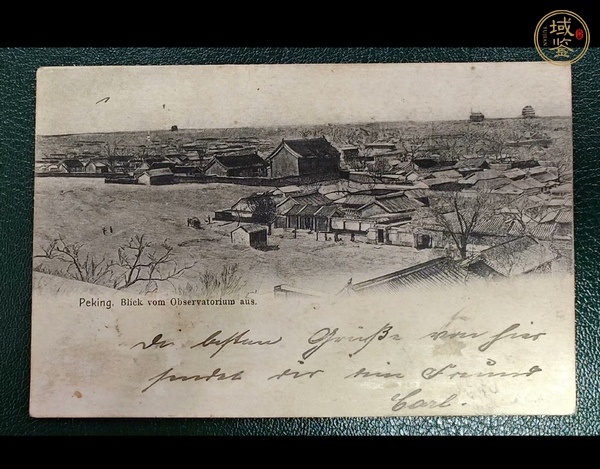 域鉴
Peking. Blick vom Observatorium aus.
Die besten Grüße von hier
sendet dir dein Freund
Carl.